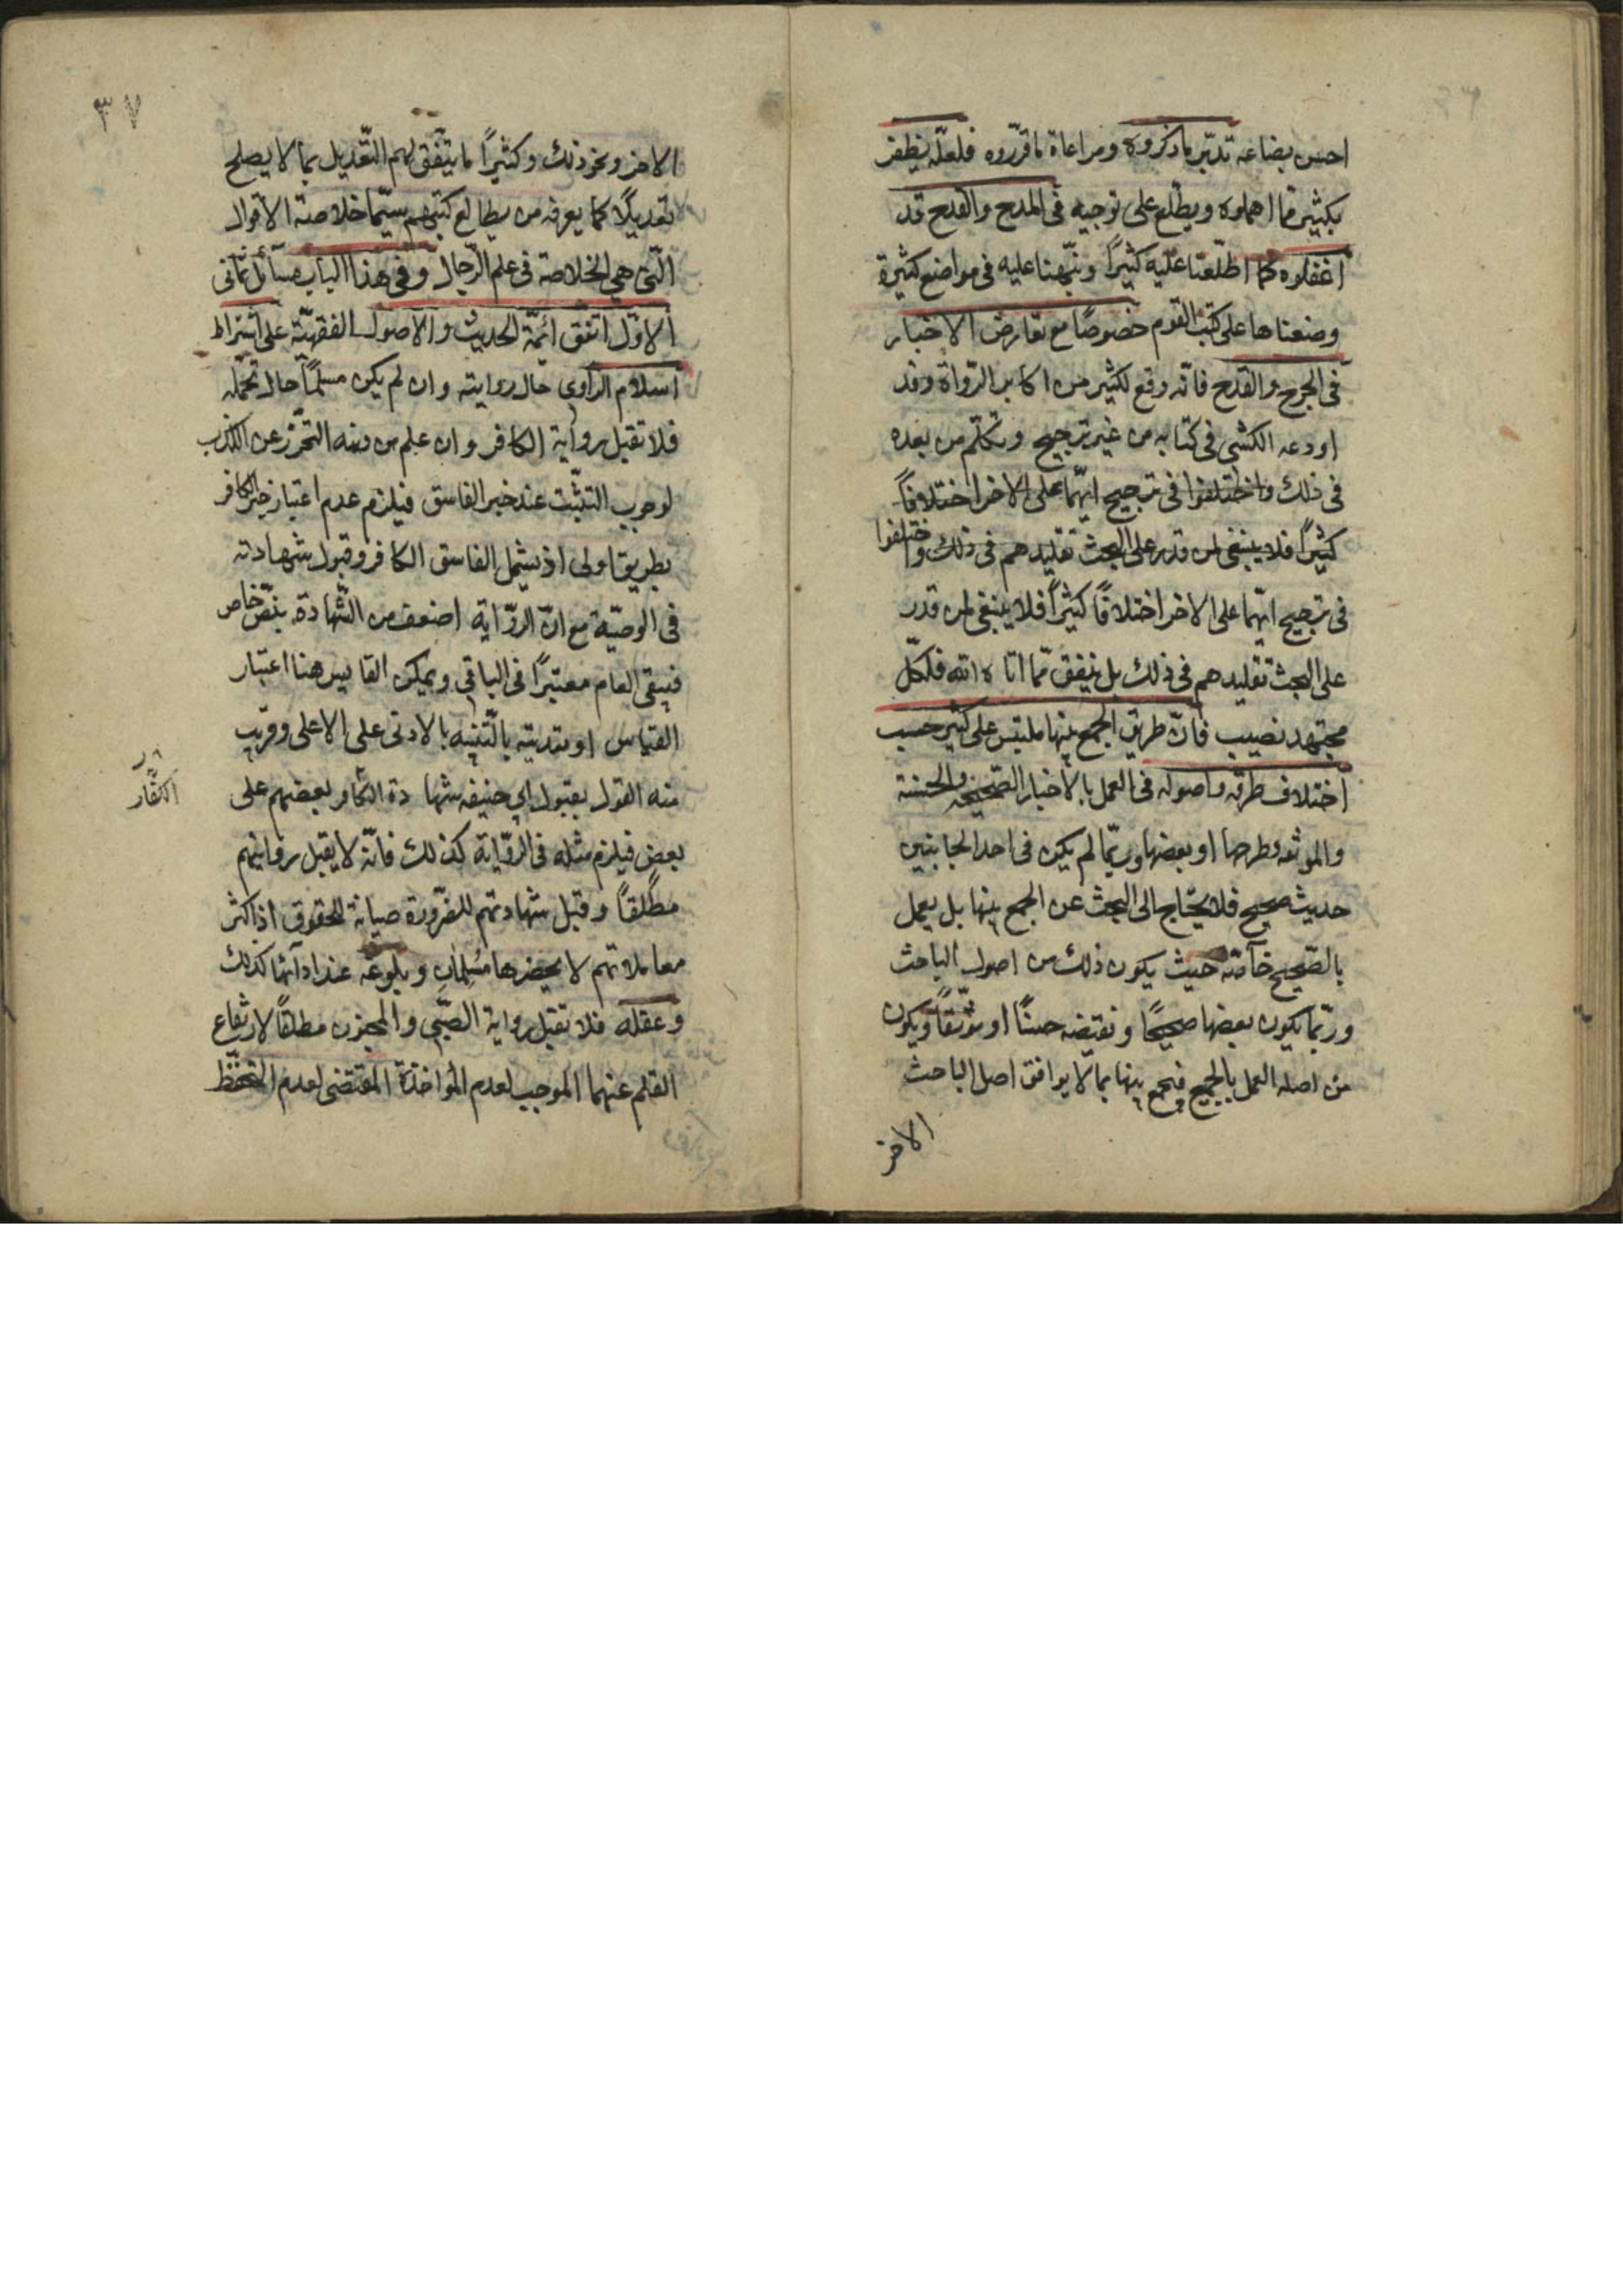 احسن بضاعه تدبّر ما ذكروه ومراعاة ما قرّروه فلعلّه يظفر
بكثير مما اهملوه ويطّلع على توجيه فى المدح والقدح قد
اغفلوه كما اطّلعنا عليه كثيرًا ونبّهنا عليه فى مواضع كثيرة
وضعناها على كتب القوم خصوصًا مع تعارض الاخبار
فى الجرح والقدح فانّه وقع لكثير من اكابر الرّواة وقد
اودعه الكشى فى كتابه من غير ترجيح وتكلّم من بعده
فى ذلك واختلفوا فى ترجيح ايّهما على الاخر اختلافًا
كثيرًا فلا ينبغى لمن قدر على البحث تقليدهم فى ذلك واختلفوا
فى ترجيح ايّهما على الاخر اختلافًا كثيرًا فلا ينبغى لمن قدر
على البحث تقليدهم فى ذلك بل ينفق ممّا اتاه الله فلكلّ
مجتهد نصيب فانّ طريق الجمع بينها ملتبس على كثير حسب
اختلاف طرقه واصوله فى العمل بالاخبار الصّحيحه والحسنة
والموثقه وطرحها او بعضها وربّما لم يكن فى احد الجانبين
حديث صحيح فلا يحتاج الى البحث عن الجمع بينها بل يعمل
بالصّحيح خاصّة حيث يكون ذلك من اصول الباحث
وربّما يكون بعضها صحيحًا ونقيضه حسنًا او موثّقًا ويكون
من اصله العمل بالجميع فيجمع بينها بما لا يوافق اصل الباحث
الاخر
٣٧
الاخر ونحو ذلك وكثيرًا ما يتّفق لهم التّعديل بما لا يصلح
تعديلًا كما يعرفه من يطالع كتبهم سيّما خلاصة الاقوال
الّتى هى الخلاصة فى علم الرّجال وفى هذا الباب مسائل ثمانى
الاوّل اتفق ائمّة الحديث والاصول الفقهيّة على اشتراط
اسلام الراوى حال روايته وان لم يكن مسلمًا حال تحمّله
فلا تقبل رواية الكافر وان علم من دينه التحّرز عن الكذب
لوجوب التثبّت عند خبر الفاسق فيلزم عدم اعتبار خبر الكافر
بطريق اولى اذ يشمل الفاسق الكافر وقبول شهادته
فى الوصيّة مع انّ الرّواية اضعف من الشّهادة بنصّ خاص
فيبقى العام معتبرًا فى الباقى ويمكن القايس هنا اعتبار
القياس او تعديته بالتّنبيه بالادنى على الاعلى وقريب
منه القول بقبول ابى حنيفه شهادة الكافر بعضهم على
الكفّار
بعض فيلزم مثله فى الرّواية كذلك فانّه لا يقبل روايتهم
مطلقًا وقبل شهادتهم للضّرورة صيانة للحقوق اذ اكثر
معاملاتهم لا يحضرها مسلمان وبلوغه عند ادآئها كذلك
وعقله فلا تقبل رواية الصّبى والمجنون مطلقًا لارتفاع
القلم عنهما الموجب لعدم المؤاخذة المقتضى لعدم التحفّظ